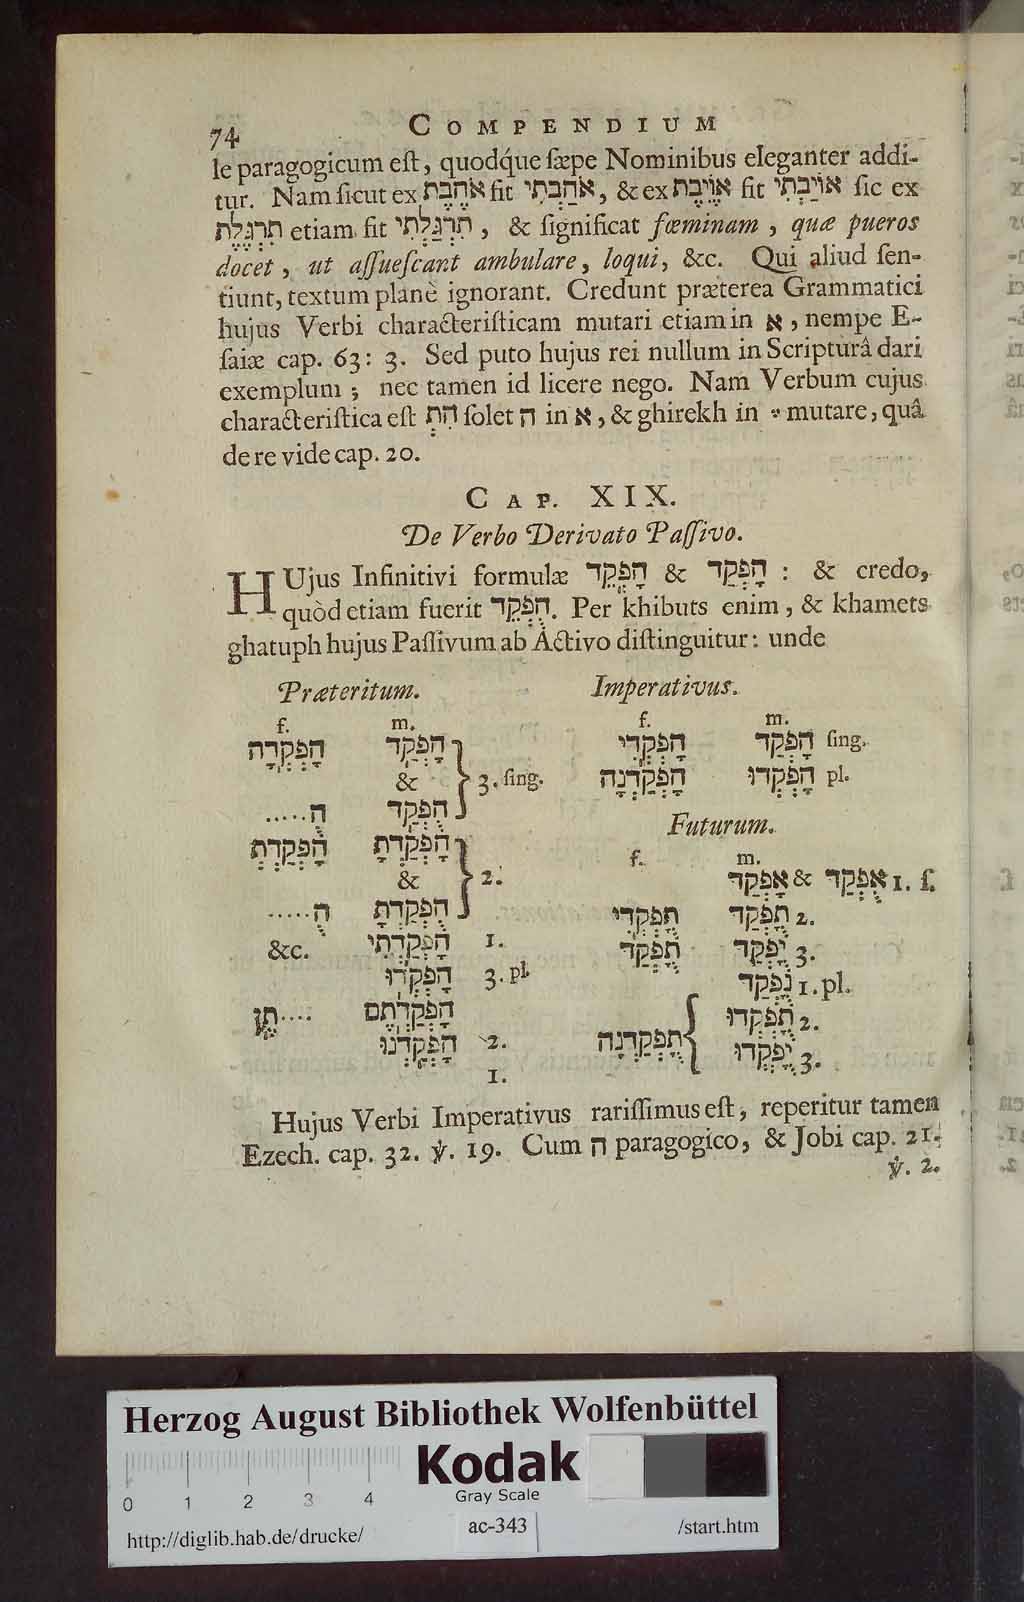 74 COMPENDIUM
le paragogicum est, quodq́ue sæpe Nominibus eleganter addi-
tur. Nam sicut ex אֹהֶבֶת fit אֹהַבְתִּי, & ex אוֹיֶבֶת fit אוֹיַבְתִּי sic ex
תִרְגֶּלֶת etiam fit תִרְגַּלְתִּי, & significat fœminam, quæ pueros
docet, ut assuescant ambulare, loqui, &c. Qui aliud sen-
tiunt, textum planè ignorant. Credunt præterea Grammatici
hujus Verbi characteristicam mutari etiam in א, nempe E-
saiæ cap. 63: 3. Sed puto hujus rei nullum in Scripturâ dari
exemplum; nec tamen id licere nego. Nam Verbum cujus
characteristica est הִתְ solet ה in א, & ghirekh in ֶ mutare, quâ
de re vide cap. 20.
CAP. XIX.
De Verbo Derivato Passivo.
HUjus Infinitivi formulæ הָפְקֵד & הָפְקַד : & credo,
quòd etiam fuerit הֻפְקֵד. Per khibuts enim, & khamets
ghatuph hujus Passivum ab Activo distinguitur: unde
Præteritum. Imperativus.
f. m. f. m.
הָפְקְדָה הָפְקַד הָפְקְדִי הָפְקַד sing.
& 3. sing. הָפְקַדְנָה הָפְקְדוּ pl.
.....הֻ הֻפְקַד
Futurum.
הָפְקַדְתְּ הָפְקַדְתָּ
f. m.
& 2. אָפְקַד & אֻפְקַד 1. s.
.....הֻ הֻפְקַדְתָּ תָּפְקְדִי תָּפְקַד 2.
&c. הָפְקַדְתִּי 1. תָּפְקַד יָפְקַד 3.
הָפְקְדוּ 3. pl. נָפְקַד 1. pl.
תֶּן.... הָפְקַדְתֶּם תָּפְקְדוּ 2.
הָפְקַדְנוּ 2. תָּפְקַדְנָה יָפְקְדוּ 3.
1.
Hujus Verbi Imperativus rarissimus est, reperitur tamen
Ezech. cap. 32. ℣. 19. Cum ה paragogico, & Jobi cap. 21.
℣. 2.
Herzog August Bibliothek Wolfenbüttel
Kodak
Gray Scale
0 1 2 3 4
http://diglib.hab.de/drucke/ ac-343 /start.htm